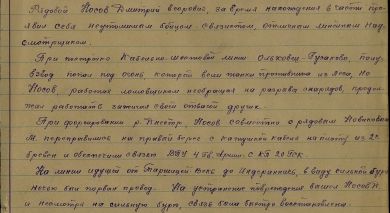 Рядовой Носов Дмитрий Егорович, за время нахождения в части про-
явил себя неутомимым бойцом-связистом, отличным линейным над-
смотрщиком.
При постройке кабельно-шестовой линии Ольховец - Гусаково, полу-
взвод попал под огонь который вели танки противника из леса, но
Носов, работая невзирая на разрывы снарядов, продол-
жал работать заражая своей отвагой других.
При форсировании р. Днестр, Носов совместно с рядовым Новиковым
переправившись на правый берег с катушкой кабеля на плоту из 2х
бревен и обеспечили связь ВПУ 4 Гв. Армии с КП 20 ГСК
На линии идущей от до в виду сильной бури
несколько раз порвал провод. На устранение повреждения вышел Носов Н.
и несмотря на сильную бурю, связь была быстро восстановлена.